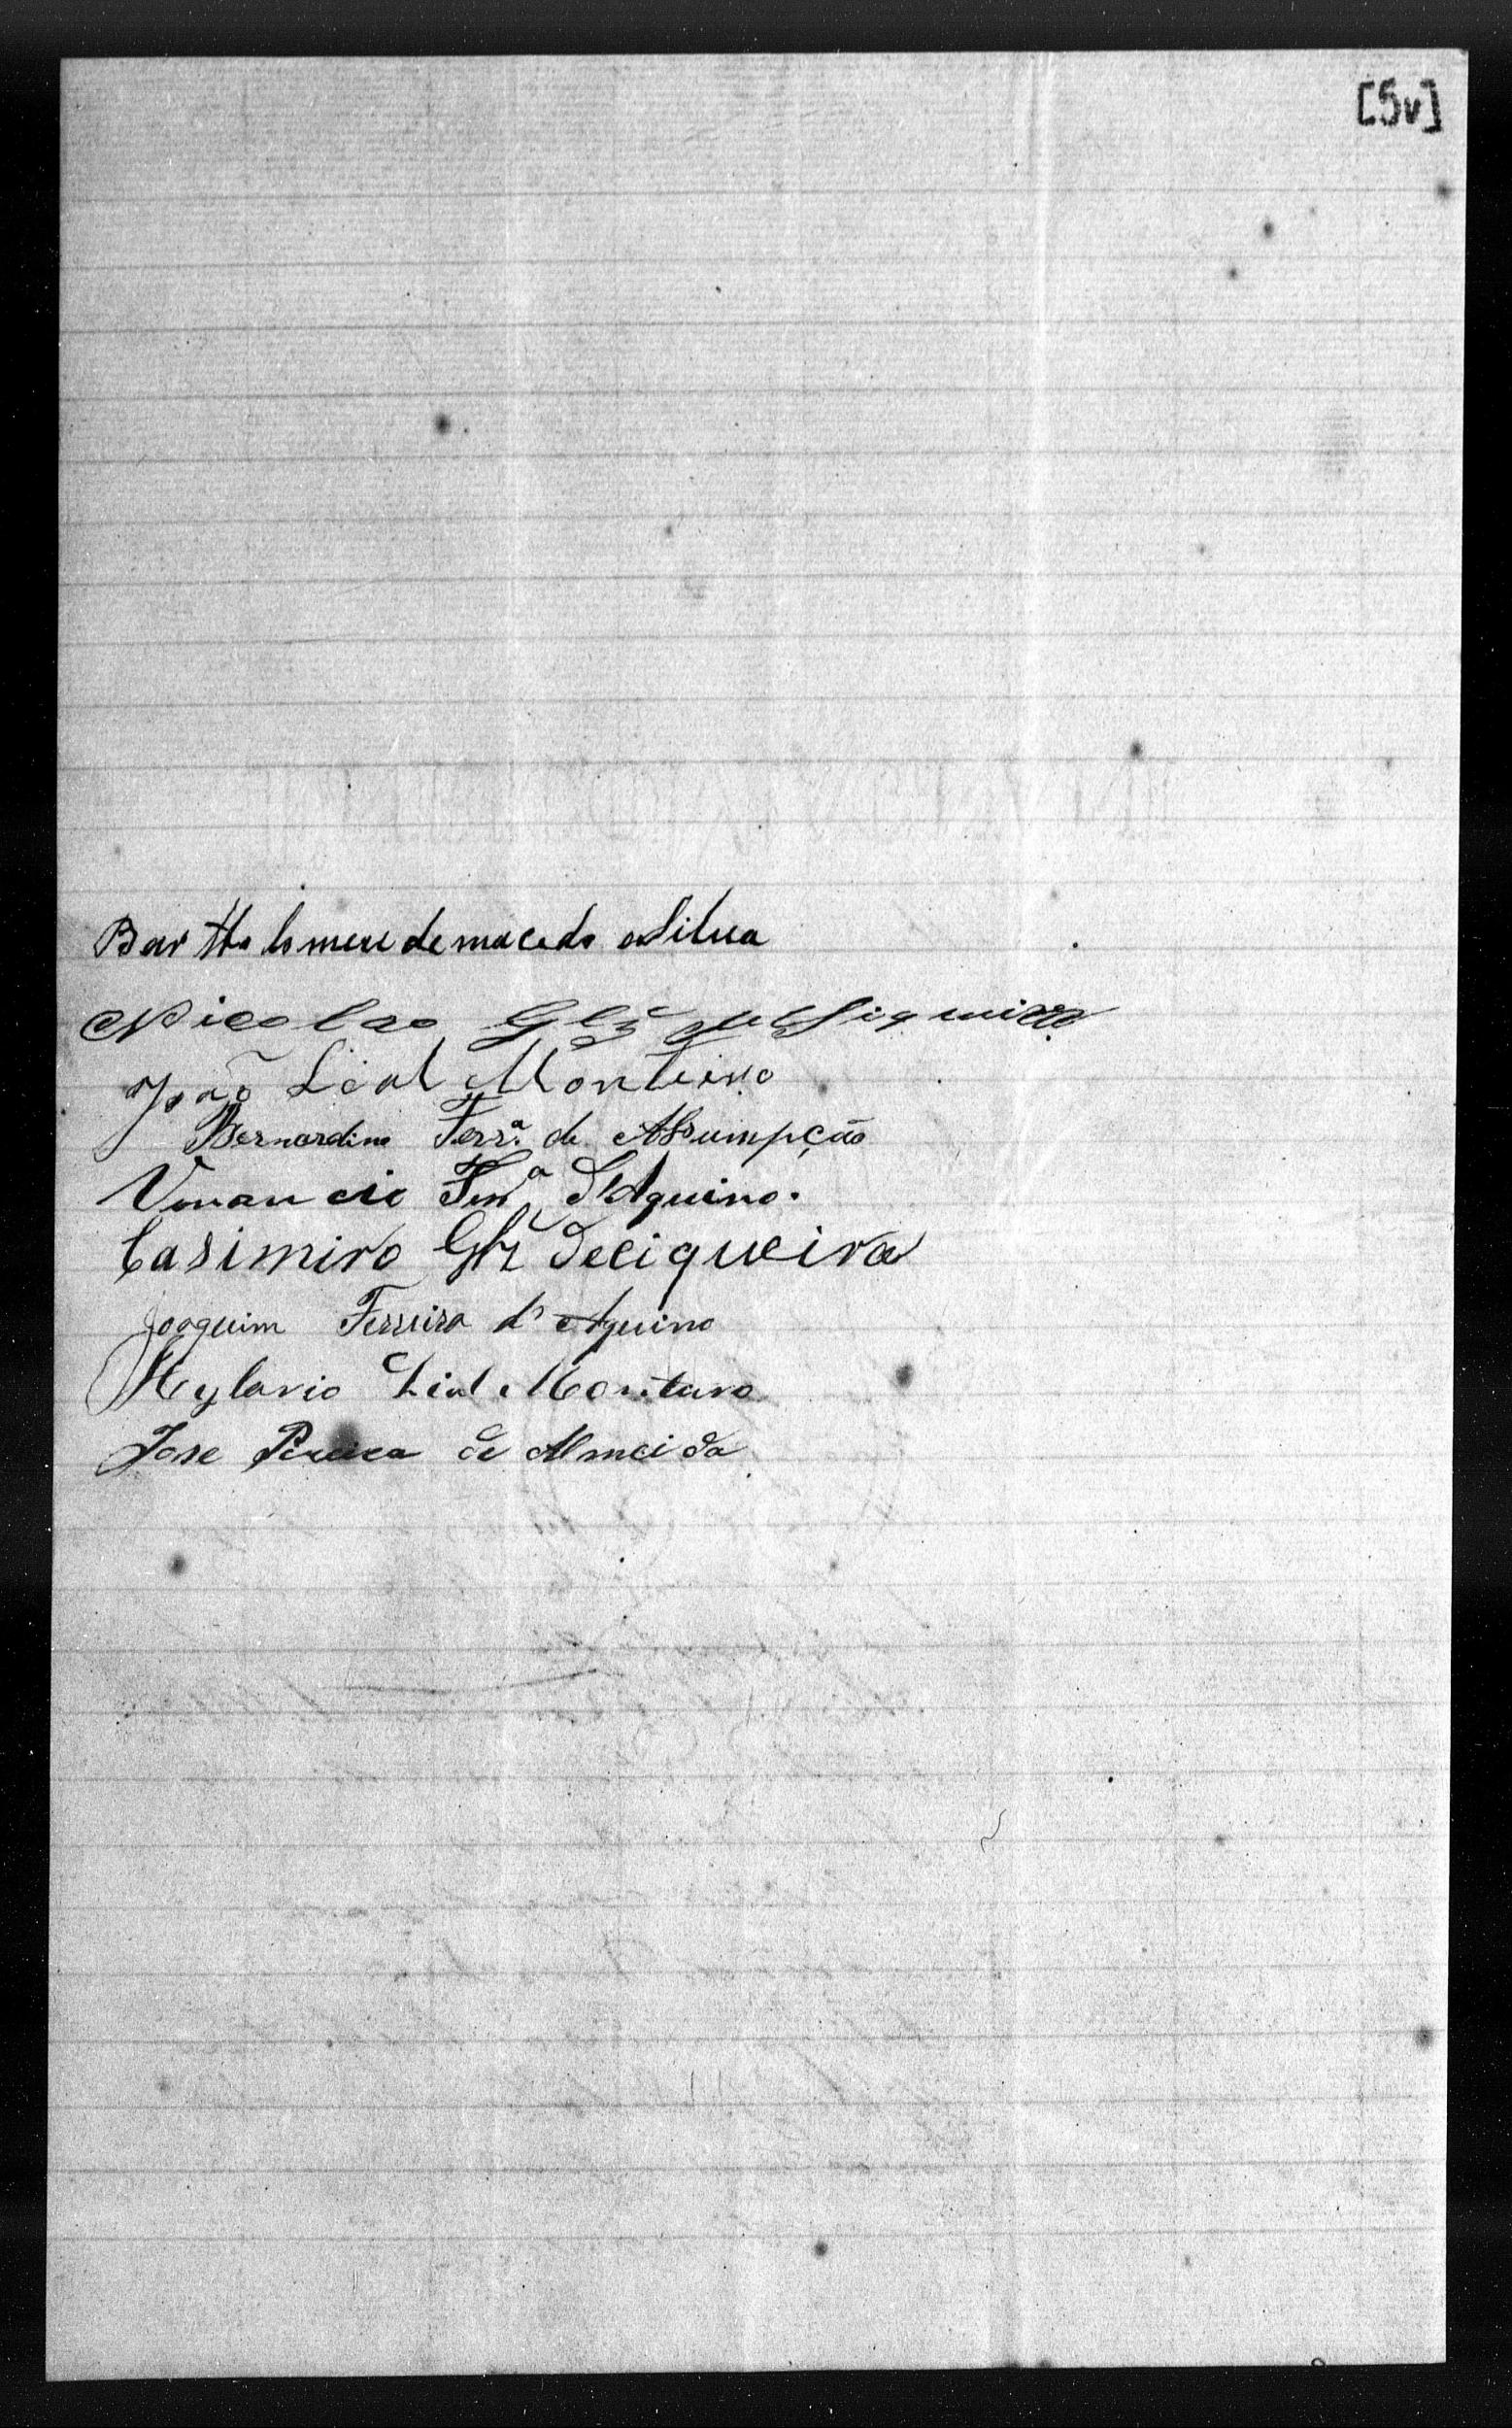 [5v]
Bartholomeu de macedo e Silva
Nicolao Glz de Siqueira
João Lial Monteiro
Bernardino Ferrª de Assumpção
Venancio Ferrª d'Aquino.
Casimiro Glz deciqueira
Joaquim Ferreira d'Aquino
Hylario Lial Montero
Jose Pereira de Almeida